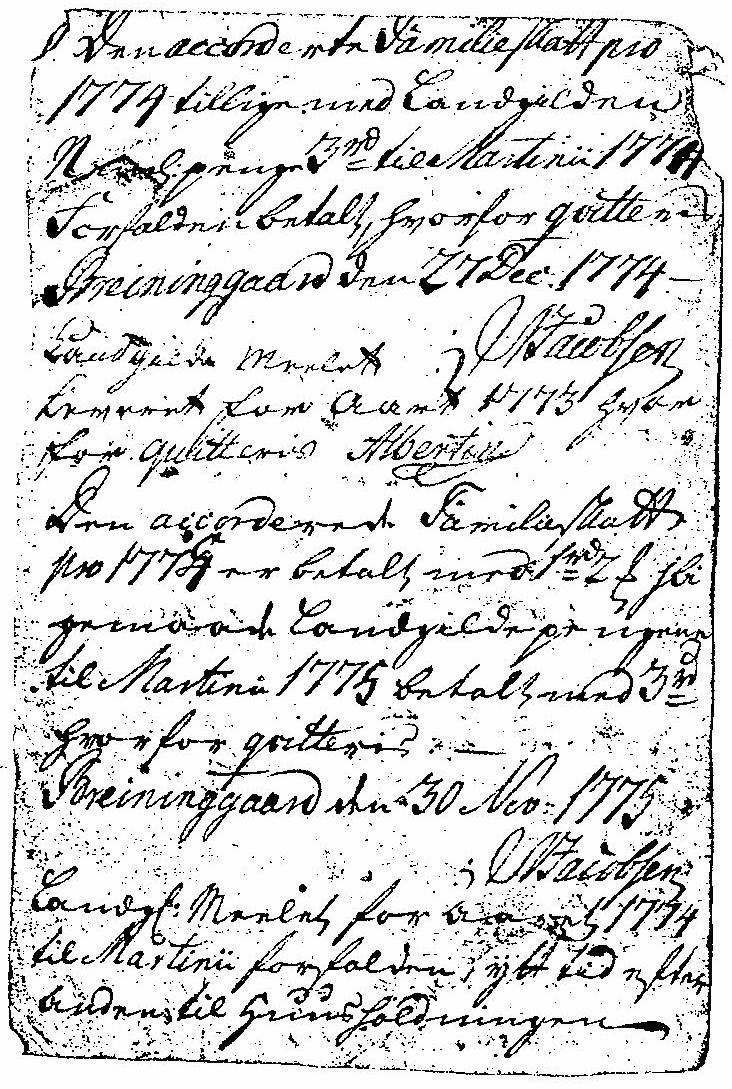 Den accorderte Familie skatt pro
1774 tillige med Landgilden
penge 3 rd til Martinii 1774
Forfalden betalt, hvorfor qvitteris
Breininggaard den 27 Dec. 1774
Jacobsen
Landgilde Meelet
Leveret for Aaret 1773 hvor
for quitteris Albertin
Den accorderede Familieskatt
pro 1774 er betalt med 1 rd 2
Landgilde pengene
til Martinii 1775 betalt med 3 rd
hvorfor qvitteris
Breininggaard den 30 Nov. 1775
Jacobsen
Landg: Meelet for Aaret 1774
til Martinii forfalden, ydt tid efter
anden til Huusholdningen